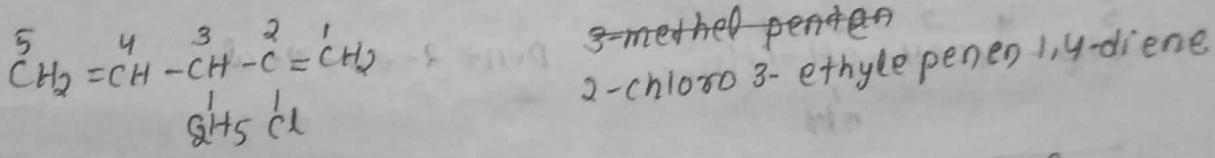 5 4 3 2 1
CH2 = CH - CH - C = CH2
C2H5 Cl
3-methel pentan
2-chloro 3-ethyle penen 1,4-diene